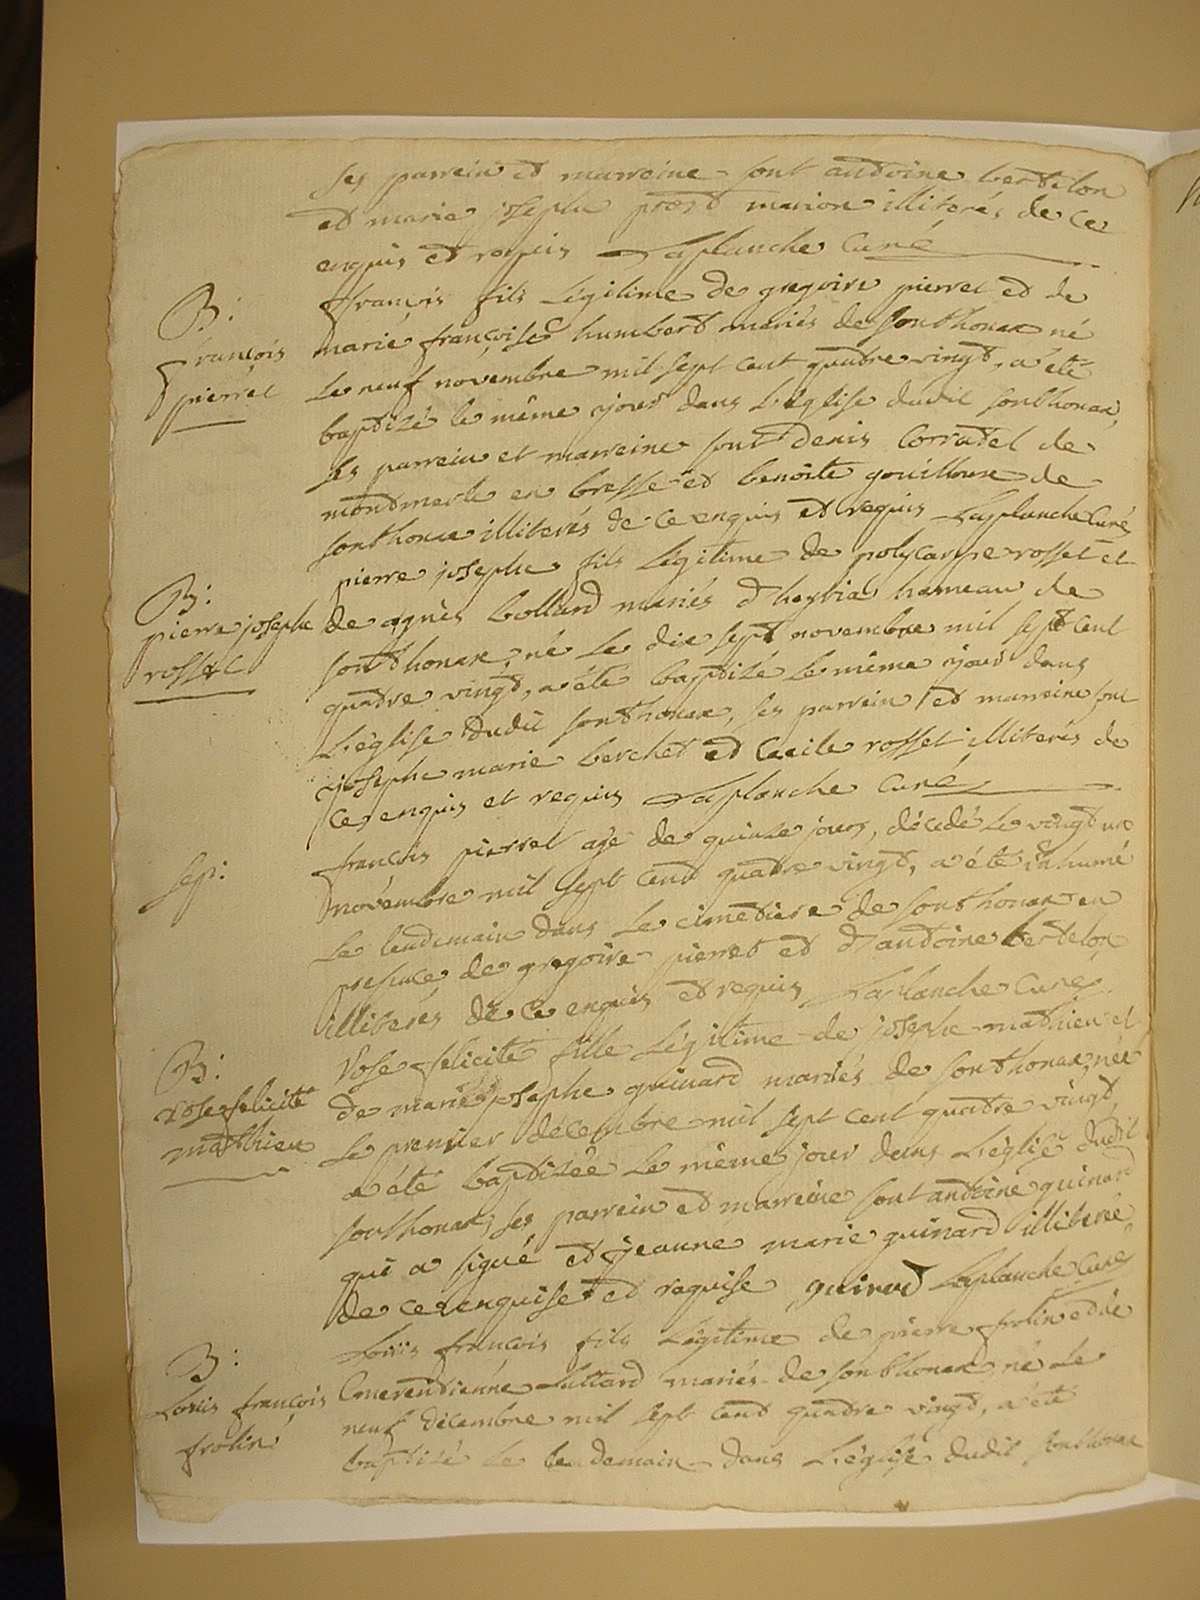 ses parrein et marreine sont antoine bertelon
et marie josephe prost marion illiterés de ce
enquis et requis Laplanche Curé
B:
françois
pierrel
françois fils Légitime de gregoire pierrel et de
marie françoise humbert mariés de Sonthonax né
Le neuf novembre mil sept cent quatre vingt, a été
baptizé le même jour dans L'église dudit sonthonax,
ses parrein et marreine sont denis Corratel de
montmerle en bresse et benoîte gouilloux de
sonthonax illiterés de ce enquis et requis Laplanche Curé
B:
pierre josephe
rosset
pierre josephe fils Légitime de polycarpe rosset et
de agnès bollard mariés d'heyria hameau de
sonthonax, né Le dix sept novembre mil sept cent
quatre vingt, a été baptizé Le même jour dans
L'église dudit sonthonax, ses parrein et marreine sont
josephe marie berchet et Cecile rosset illiterés de
ce enquis et requis Laplanche Curé
Sep:
françois pierrel agé de quinze jours, décedé Le vingt un
novembre mil sept cent quatre vingt, a été inhumé
Le lendemain dans Le cimetiere de sonthonax en
presence de gregoire pierrel et d'antoine bertelon
illiterés de ce enquis et requis Laplanche Curé
B:
rose felicité
mathieu
rose felicité fille Légitime de josephe mathieu et
de marie josephe guinard mariés de sonthonax, née
Le premier décembre mil sept cent quatre vingt,
a été baptizée Le même jour dans L'église dudit
sonthonax, ses parrein et marreine sont antoine guinard
qui a signé et jeanne marie guinard illiterée
de ce enquise et requise guinard Laplanche Curé
B:
Louis françois
frolin
Louis françois fils Légitime de pierre frolin et de
Lullard mariés de sonthonax, né Le
neuf décembre mil sept cent quatre vingt, a été
baptizé le lendemain dans L'église dudit sonthonax